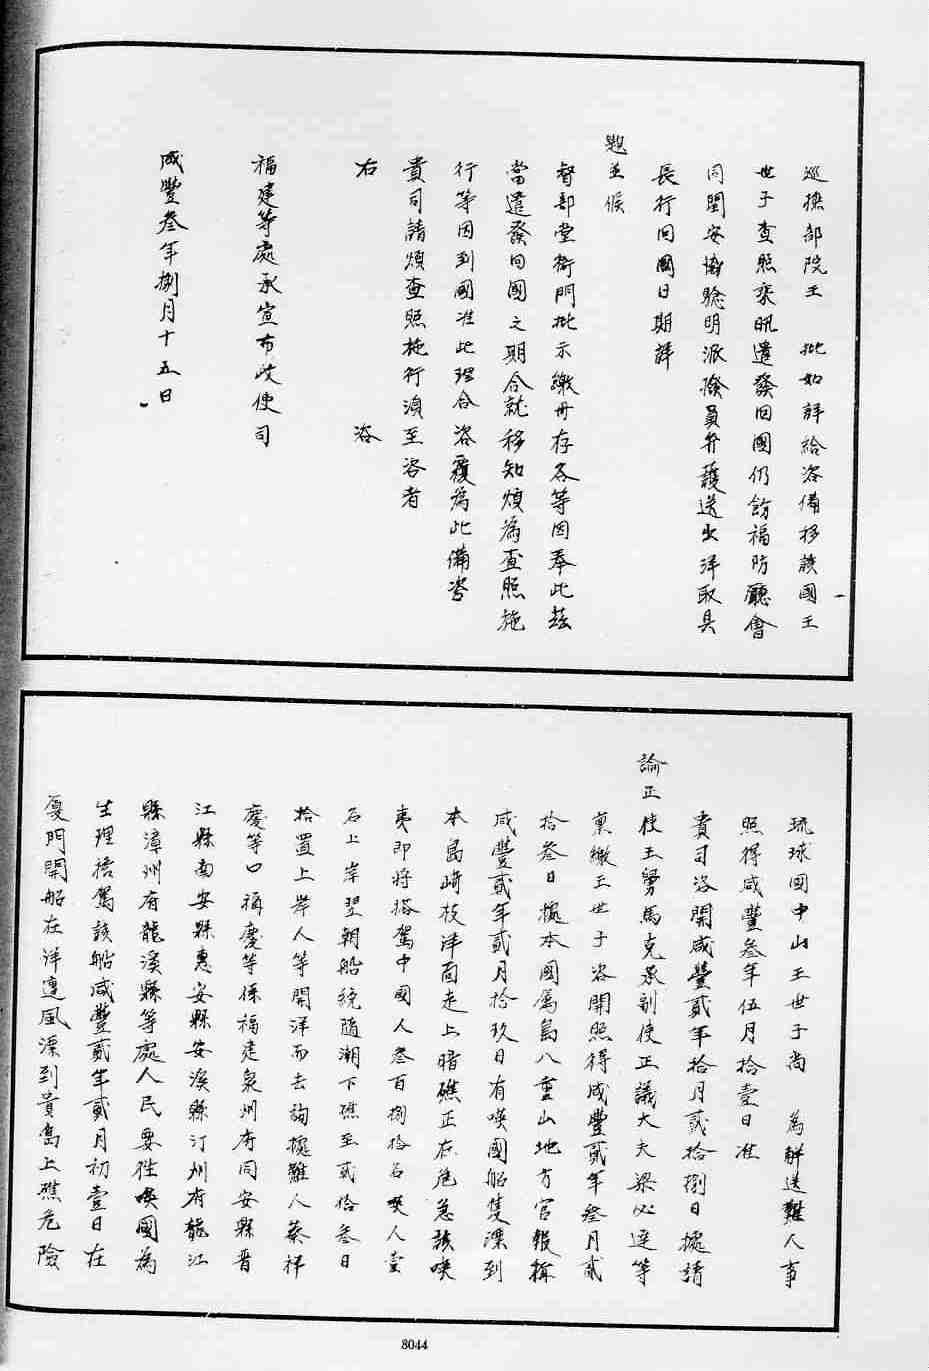 巡撫部院王　批如詳給咨備移該國王
世子查照來貺遣發回國仍飭福防廳會
同閩安協驗明派撥員弁護送出洋取具
長行回國日期詳
題並候
督部堂衙門批示繳冊存各等因奉此茲
當遣發回國之期合就移知煩為查照施
行等因到國准此理合咨覆為此備咨
貴司請煩查照施行須至咨者
右　咨
福建等處承宣布政使司
咸豐叁年捌月十五日
琉球國中山王世子尚　為解送難人事
照得咸豐叁年伍月拾壹日准
貴司咨開咸豐貳年拾月貳拾捌日據請
諭正使王舅馬克承副使正議大夫梁必達等
稟繳王世子咨開照得咸豐貳年叁月貳
拾叁日據本國屬島八重山地方官報稱
咸豐貳年貳月拾玖日有㗆國船隻漂到
本島崎枝洋面走上暗礁正在危急該㗆
夷即將搭駕中國人叁百捌拾名㗆人壹
名上岸翌朝船統隨潮下礁至貳拾叁日
拾置上岸人等開洋而去詢據難人蔡祥
慶等口稱慶等係福建泉州府同安縣晋
江縣南安縣惠安縣安溪縣汀州府龍江
縣漳州府龍溪縣等處人民要往㗆國為
生理搭駕該船咸豐貳年貳月初壹日在
廈門開船在洋遭風漂到貴島上礁危險
8044